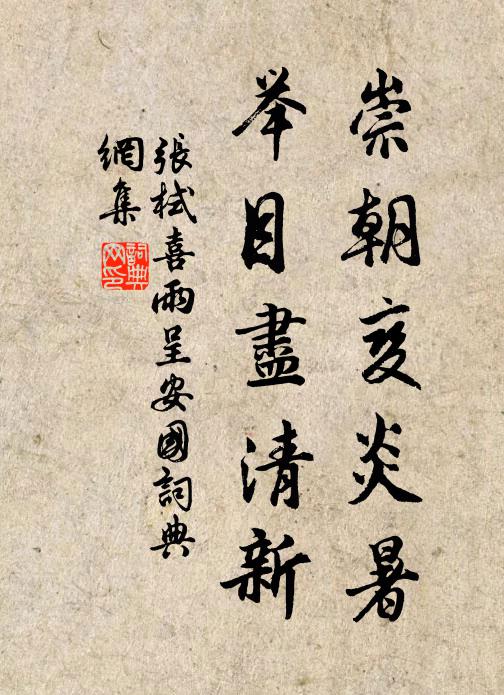 崇朝变炎暑
举目盡清新
張栻喜雨呈安國詞典
網集
詞典
网印